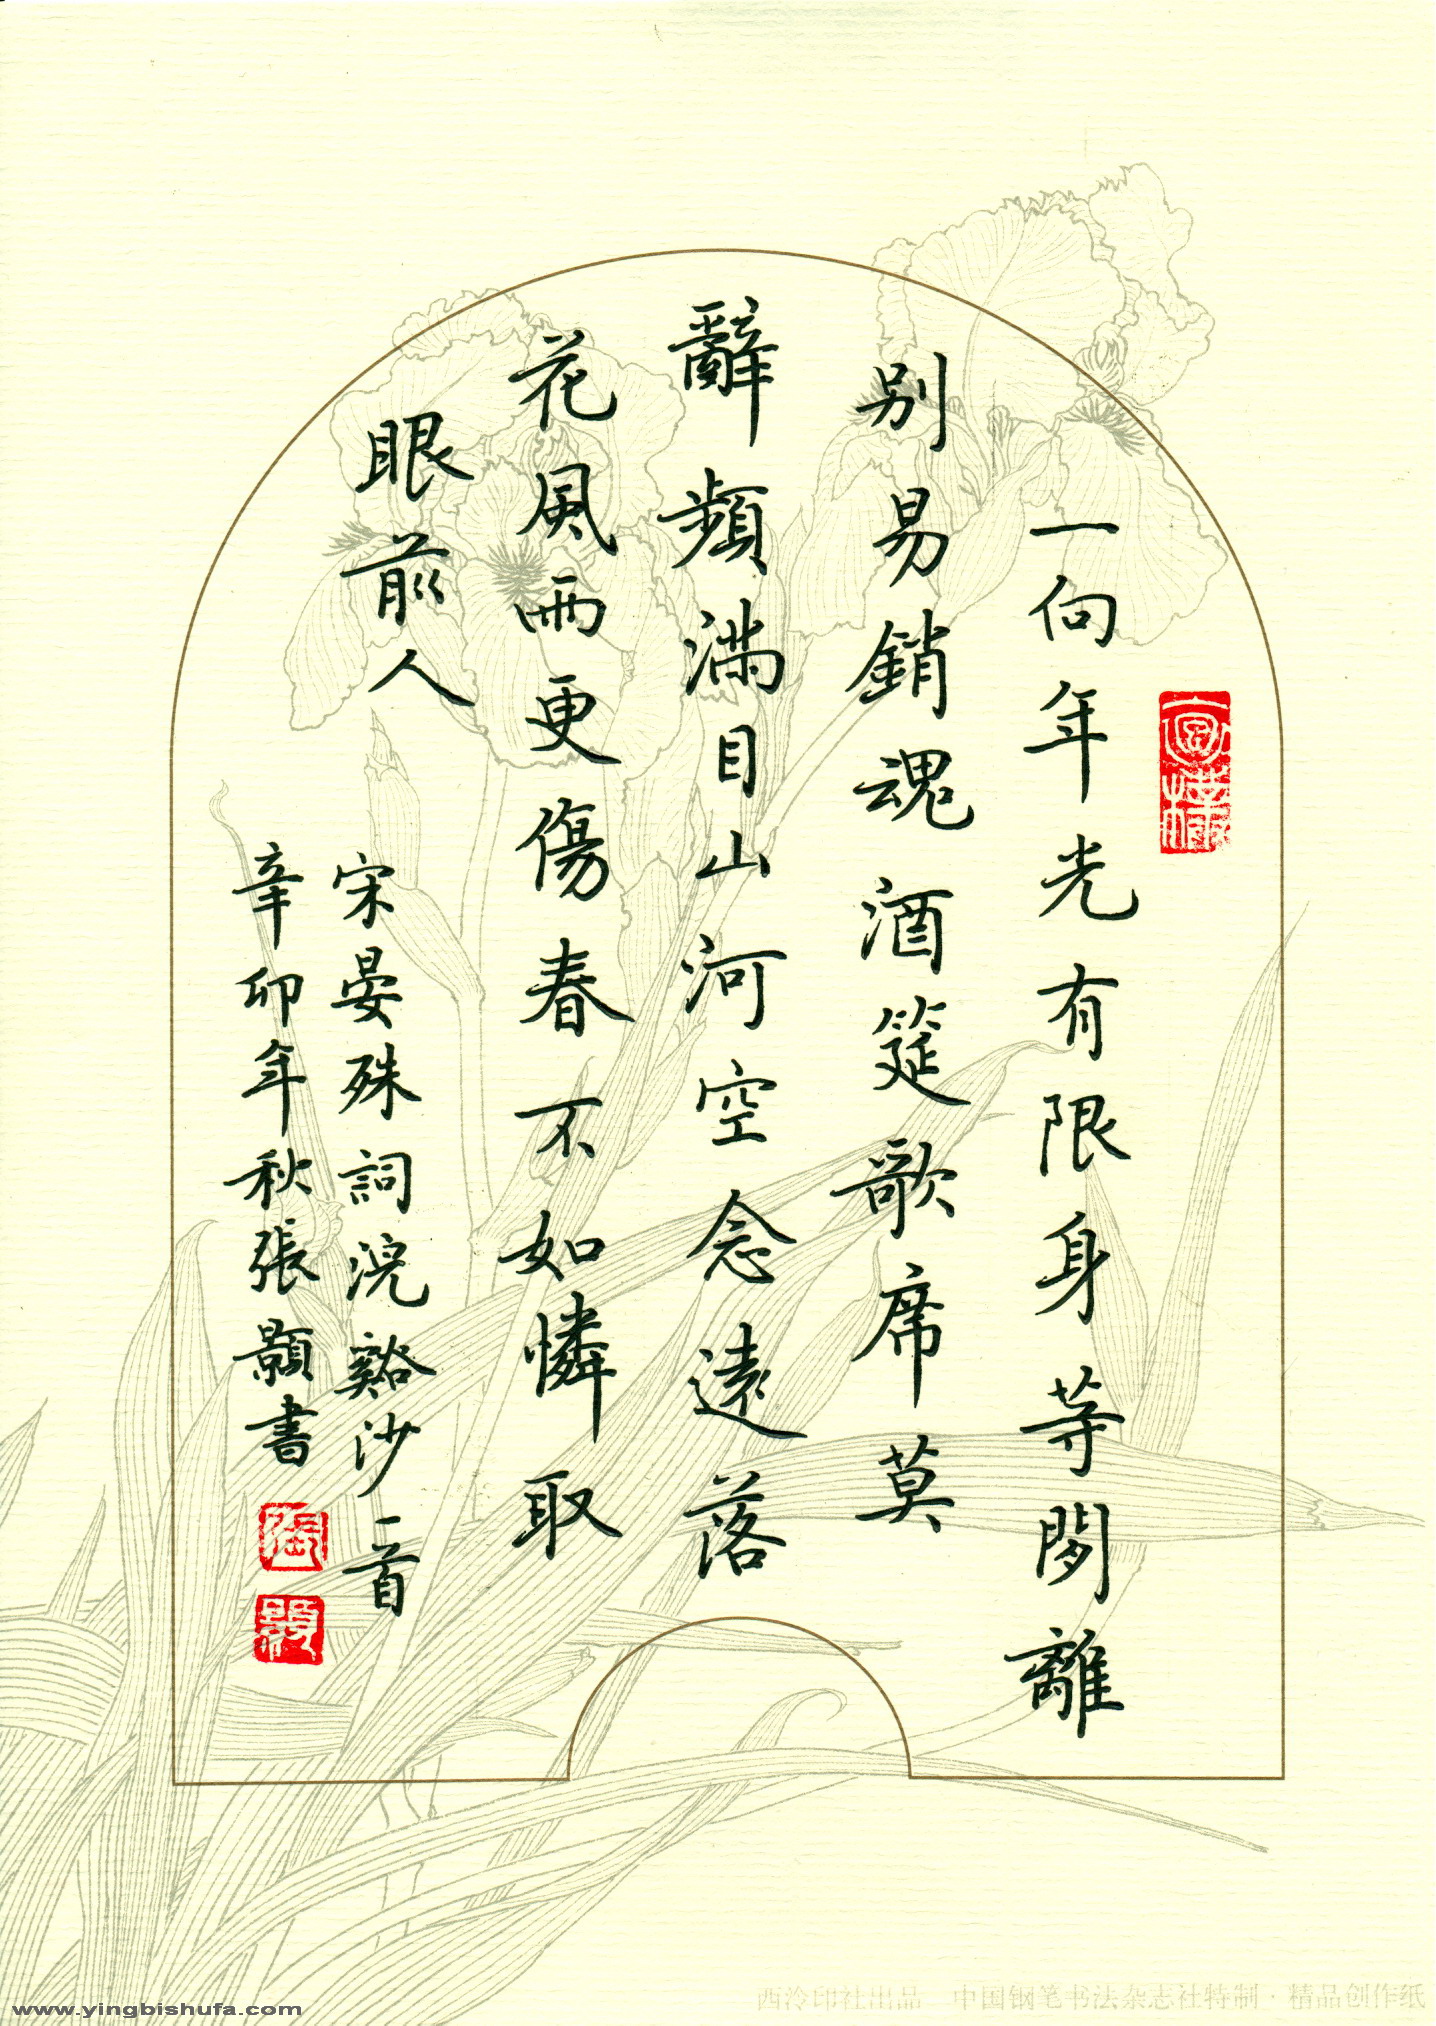 一向年光有限身等閑離
別易銷魂酒筵歌席莫
辭頻滿目山河空念遠落
花風雨更傷春不如憐取
眼前人
宋晏殊詞浣谿沙一首
辛卯年秋張顥書
西泠印社出品 中国钢笔书法杂志社特制·精品创作纸
www.yingbishufa.com